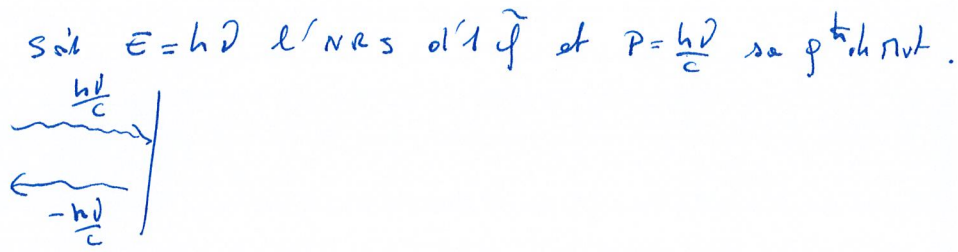 Soit E = hν l'NRJ d'1 φ̃ et P = hν/c sa qté de Mvt.
hν/c
-hν/c